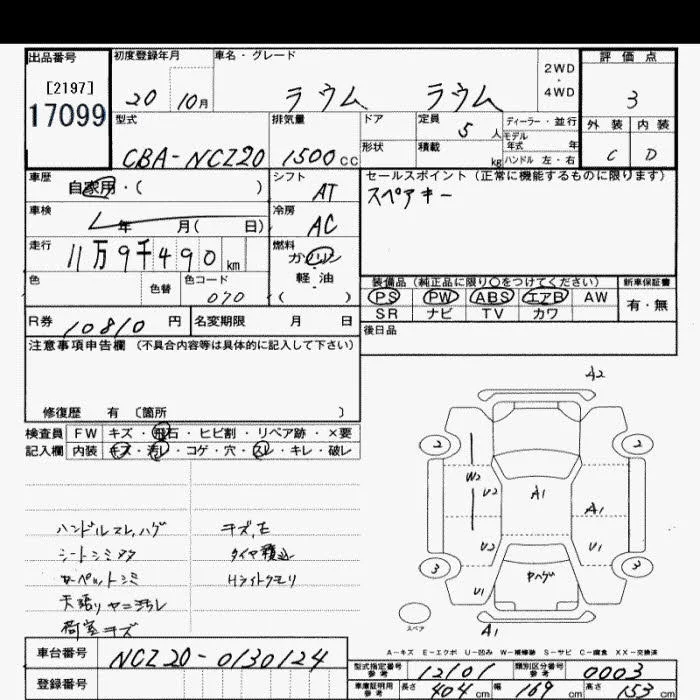 出品番号
[2197]
17099
初度登録年月
20 10月
車名・グレード
ラウム ラウム
2WD
・
4WD
評価点
3
外装 内装
C D
型式
CBA-NCZ20
排気量
1500cc
ドア
形状
定員
5人
積載
kg
ディーラー・並行
モデル
年式 年
ハンドル 左・右
車歴
自家用・( )
シフト
AT
セールスポイント(正常に機能するものに限ります)
スペアキー
車検
年 月( 日)
冷房
AC
走行
11万9千490km
燃料
ガソリン
・
軽油
( )
色
色替
色コード
070
装備品(純正品に限り○をつけてください)
PS PW ABS エアB AW
SR ナビ TV カワ
新車保証書
有・無
R券 10810円
名変期限 月 日
後日品
注意事項申告欄(不具合内容等は具体的に記入して下さい)
修復歴 有〔箇所 〕
検査員 FW キズ・飛石・ヒビ割・リペア跡・×要
記入欄 内装 キズ・汚レ・コゲ・穴・スレ・キレ・破レ
ハンドルスレ,ハゲ
シートシミ
カーペットシミ
天張りヤニ汚レ
荷室キズ
キズ,E
Hライトクモリ
A2
2 2
W2
U2 A1 A1
U2 U1
3 3
U1 ヤハゲ
スペア
A1
A-キズ E-エクボ U-凹み W-補修跡 S-サビ C-腐食 XX-交換済
車台番号
NCZ20-0130124
登録番号
型式指定番号
参考
12101
類別区分番号
参考
0003
車庫証明用
参考
長さ 404cm 幅 169cm 高さ 153cm